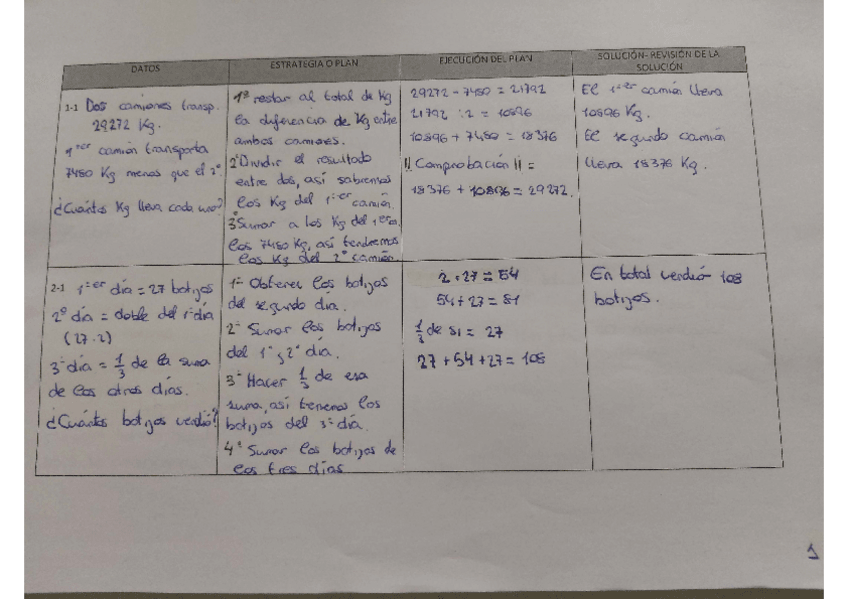 DATOS
ESTRATEGIA O PLAN
EJECUCIÓN DEL PLAN
SOLUCIÓN-REVISIÓN DE LA
SOLUCIÓN
1-1 Dos camiones transp.
29272 Kg.
1er camión transporta
7480 Kg menos que el 2º.
¿Cuántos Kg lleva cada uno?
1º restar al total de Kg
la diferencia de Kg entre
ambos camiones.
2º Dividir el resultado
entre dos, así sabremos
los Kg del 1er camión.
3º Sumar a los Kg del 1ero,
los 7480 Kg, así tendremos
los Kg del 2º camión.
29272 - 7480 = 21792
21792 : 2 = 10896
10896 + 7480 = 18376
¡¡Comprobación!! =
18376 + 10896 = 29272.
El 1er camión lleva
10896 Kg.
El segundo camión
lleva 18376 Kg.
2-1 1er día = 27 botijos
2º día = doble del 1º día
(27·2)
3º día = 1/3 de la suma
de los otros días.
¿Cuántos botijos vendió?
1º Obtener los botijos
del segundo día.
2º Sumar los botijos
del 1º y 2º día.
3º Hacer 1/3 de esa
suma, así tenemos los
botijos del 3º día.
4º Sumar los botijos de
los tres días
2 · 27 = 54
54 + 27 = 81
1/3 de 81 = 27
27 + 54 + 27 = 108
En total vendió 108
botijos.
1